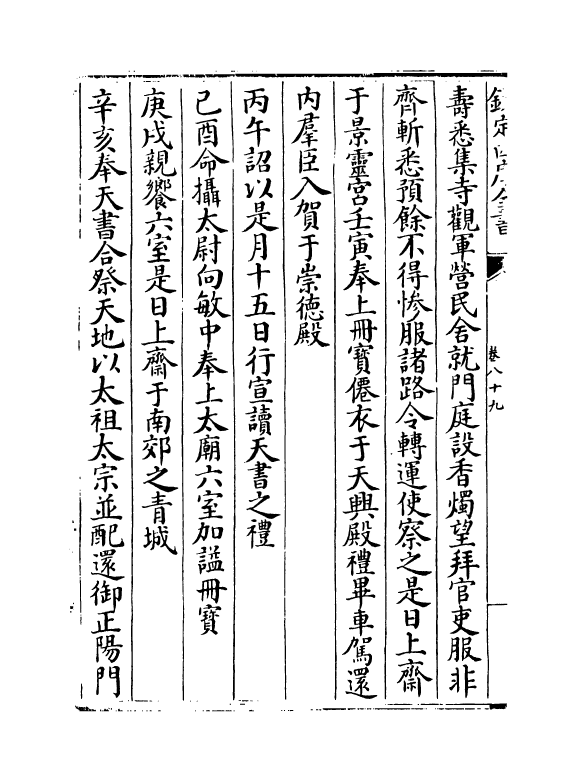 欽定四庫全書
卷八十九
壽悉集寺觀軍營民舍就門庭設香燭望拜官吏服非
齊斬悉預餘不得慘服諸路令轉運使察之是日上齋
于景靈宮壬寅奉上冊寶僊衣于天興殿禮畢車駕還
内羣臣入賀于崇德殿
丙午詔以是月十五日行宣讀天書之禮
己酉命攝太尉向敏中奉上太廟六室加諡冊寶
庚戌親饗六室是日上齋于南郊之青城
辛亥奉天書合祭天地以太祖太宗並配還御正陽門